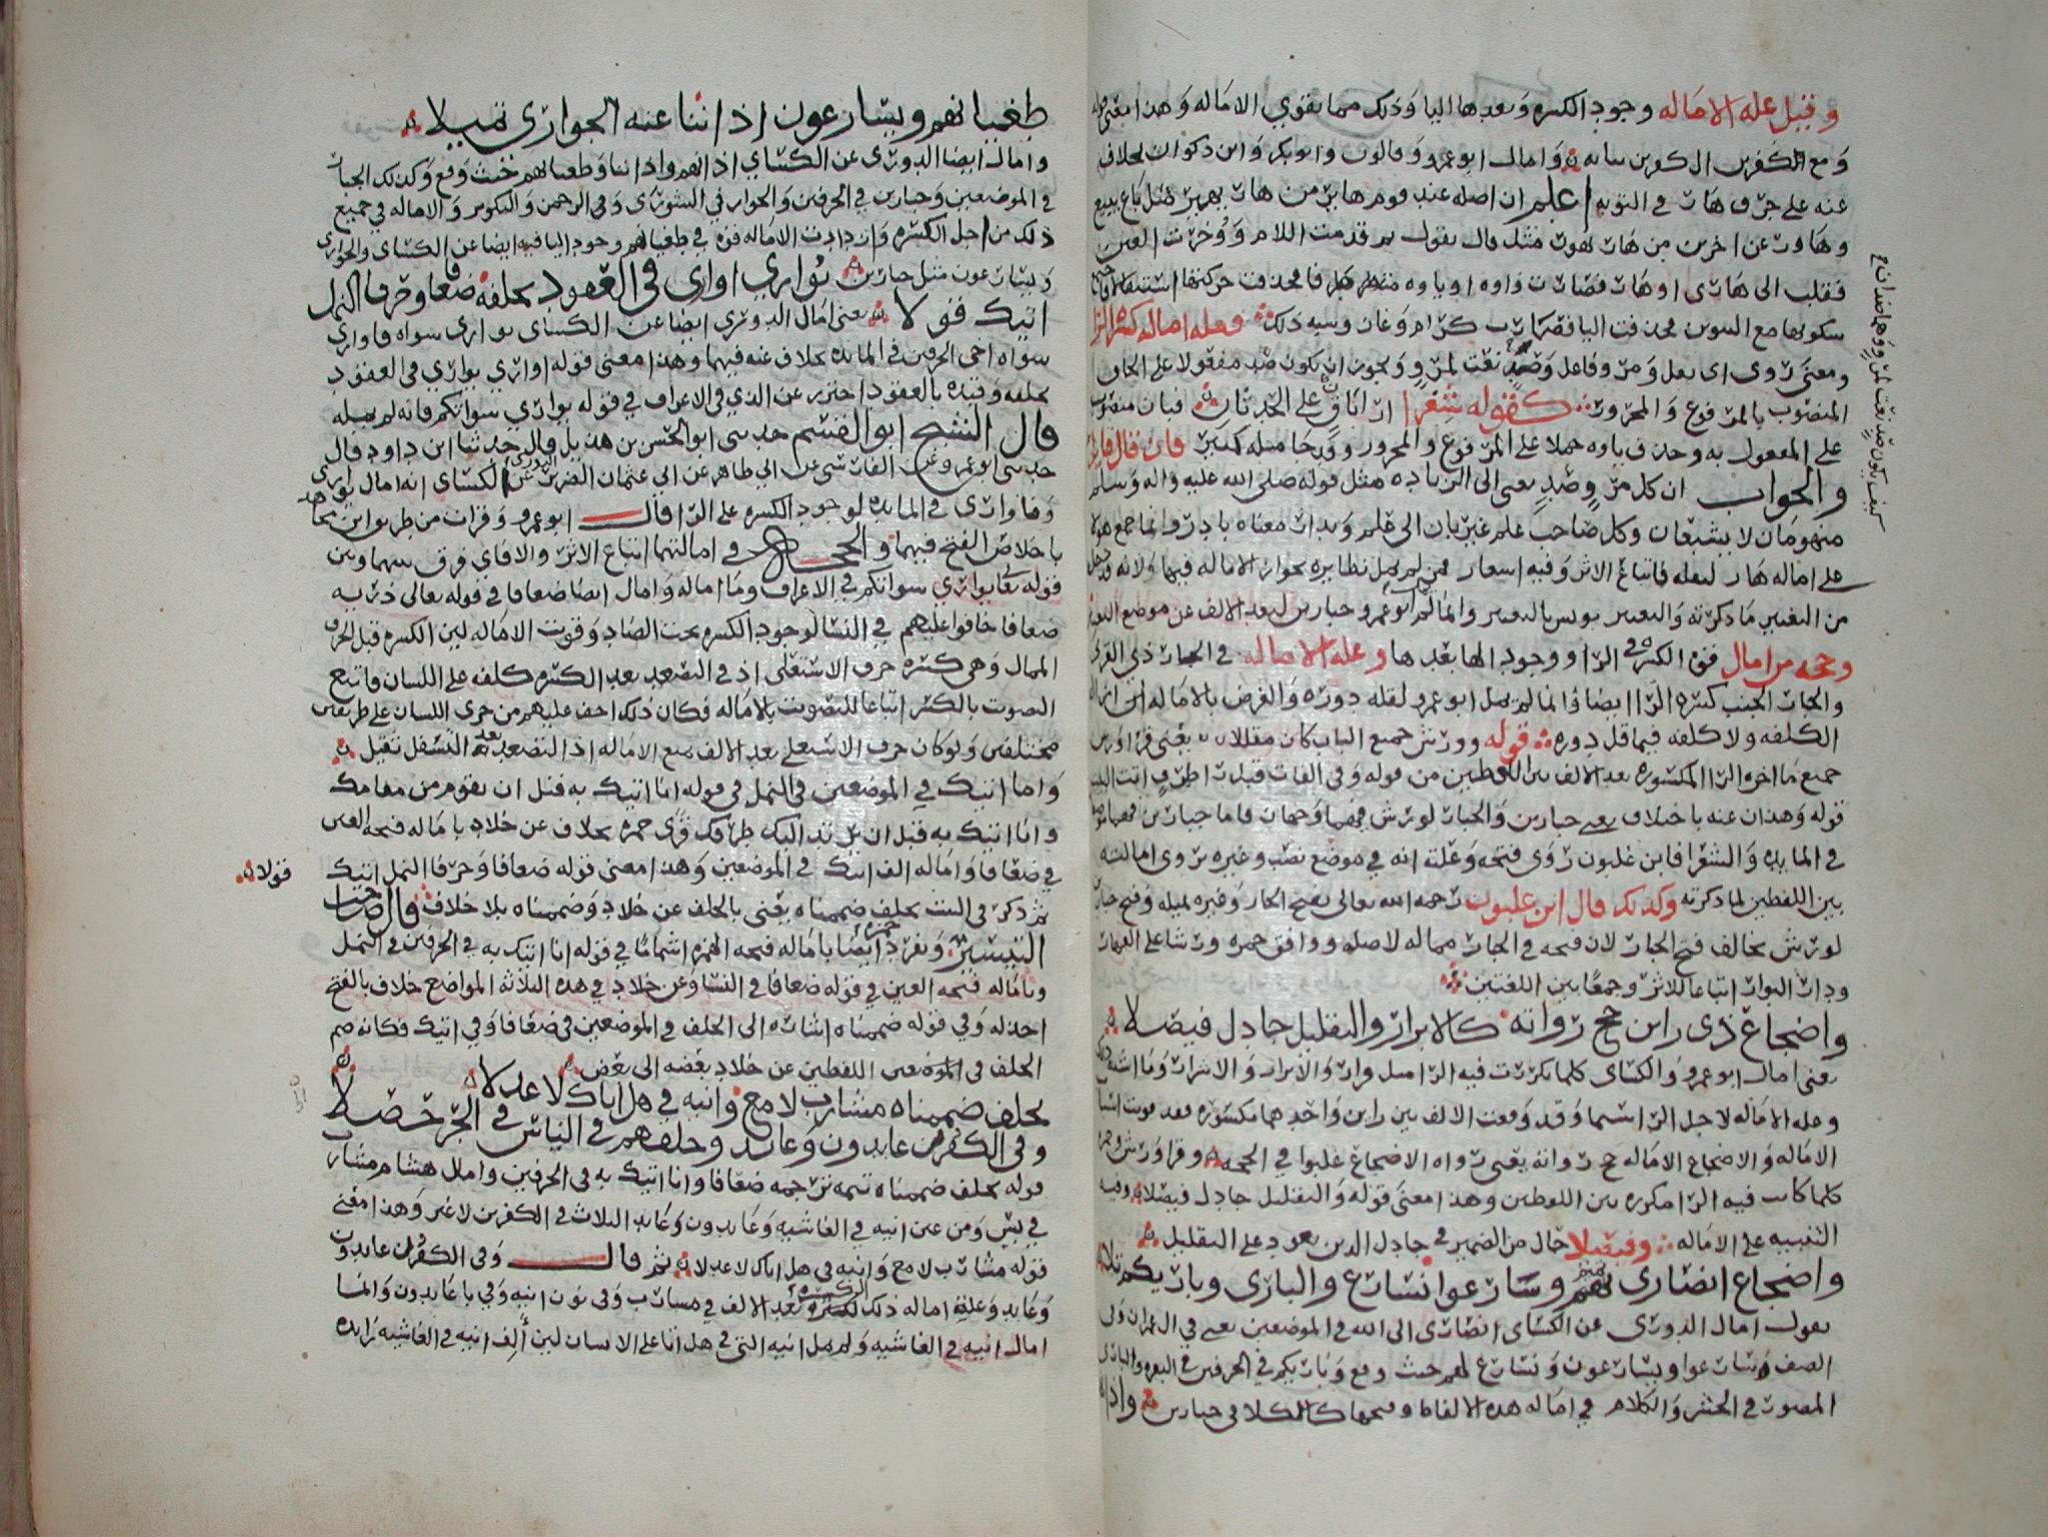 وقيل علة الامالة وجود الكسرة وبعدها اليا وذلك مما يقوي الامالة وهذا معنى قوله
ومع الكفرين الكفرين بيائه وامال ابو عمرو وقالون وابو بكر وابن ذكوان بخلاف
عنه على حرف هار في التوبة اعلم ان اصله عند قوم هاير من هار يهير مثل باع يبيع
وهاور عن اخرين من هار يهور مثل قال يقول ثم قدمت اللام واخرت العين
فقلب الى هاري او هار فصارت واوه او ياوه متطرفة فحذفت حركتها استثقالا
سكونها مع التنوين فحذفت اليا فصارت كرام وغاز وشبه ذلك فعلة امالة كسرة الرا
ومعنى روى اي نقل ومرو فاعل وصد نعت لمرو ويجوز ان يكون صد مفعولا على الحاق
المنصوب بالمرفوع والمجرور كقوله شعرا اناق على الحدثان
على المفعول به وحذف ياوه حملا على المرفوع والمجرور وقد جا مثله كثير فان قال قايل
والجواب ان كل مرو وصد يعني الى الزيادة مثل قوله صلى الله عليه واله وسلم
منهومان لا يشبعان وكل صاحب علم غرثان الى علم وبدار معناه بادر وانما جمع هولا
على امالة هار لنقله فاتباع الاثر وفيه اشعار فمن لم يمل نظايره بجواز الامالة فيها ولانه قد دخل
من التغيير ما ذكرته والتغيير يونس بالتغيير وانما لم يمل ابو عمرو جبارين لبعد الالف عن موضع التغير
وحجة من امال قوة الكسرة في الرا ووجود الها بعدها وعلة الامالة في الجار ذي القربى
والجار الجنب كسرة الرا ايضا وانما لم يمل ابو عمرو لقلة دوره والغرض بالامالة
الكلفة ولا كلفة فيما قل دوره قوله وورش جميع الباب كان مقللا يعني قرا ورش
جميع ما اخره الرا المكسورة بعد الالف بين اللفظين من قوله وفي الفات قبل را طرف اتت البيت
قوله وهذان عنه باختلاف يعني جبارين والجار لورش فيهما وجهان فاما جبارين فهما موضعان
في المايدة والشعرا فابن غلبون روى فتحه وعلته انه في موضع نصب وغيره روى امالته
بين اللفظين لما ذكرته وكذلك قال ابن غلبون رحمه الله تعالى بفتح الجار وغيره يميله وفتح جبارين
لورش يخالف فتح الجار لان فتحه في الجار مماله لاصله ووافق حمزة ورشا على القهار
ودار البوار اتباعا للاثر وجمعا بين اللغتين
واضجاع ذي راين حج رواته كالابرار والتقليل جادل فيصلا
يعني امال ابو عمرو والكساي كلما تكررت فيه الرا مثل قرار والابرار والاشرار وما اشبه
وعلة الامالة لاجل الرا اسما وقد وقعت الالف بين راين واحدهما مكسورة فقد قويت اسباب
الامالة والاضجاع الامالة حج رواته يعني رواه الاضجاع غلبوا في الحجة وقرا ورش وحمزة
كلما كان فيه الرا مكررة بين اللفظين وهذا معنى قوله والتقليل جادل فيصلا وفيه
التنبيه على الامالة وفيصلا حال من الضمير في جادل الذي يعود على التقليل
واضجاع انصاري تميم وسارعوا نسارع والباري وباريكم تلا
يقول امال الدوري عن الكساي انصاري الى الله في الموضعين يعني في ال عمران وفي
الصف وسارعوا ويسارعون ونسارع لهم حيث وقع وباريكم في الحرفين في البقرة والباري
المصور في الحشر والكلام في امالة هذه الالفاظ وفتحها كالكلام في جبارين واذا
كيف يكون صد نعت لمرو وهما ضدان
طغيانهم ويسارعون اذاننا عنه الجواري تميلا
وامال ايضا الدوري عن الكساي اذانهم واذاننا وطغيانهم حيث وقع وكذلك الجار
في الموضعين وجبارين في الحرفين والجوار في الشورى وفي الرحمن والتكوير والامالة في جميع
ذلك من اجل الكسرة وازدادت الامالة قوة في طغيانهم وجود اليا فيه ايضا عن الكساي والجواري
ويسارعون مثل جبارين يواري اواري في العقود بخلفه ضعافا وحرفا النمل
اتيك قولا يعني امال الدوري ايضا عن الكساي يواري سواه فاواري
سواه اخي الحرفين في المايدة بخلاف عنه فيهما وهذا معنى قوله اواري يواري في العقود
بخلفه وقيده بالعقود احترز عن الذي في الاعراف في قوله يواري سواتكم فانه لم يمله
قال الشيخ ابو القسم حدثني ابو الحسن بن هذيل قال حدثنا ابن داود قال
حدثني ابو عمرو عن الفارسي عن ابي طاهر عن ابي عثمان الضرير عن الدوري عن الكساي انه امال يواري
وفاواري في المايدة لوجود الكسرة على الرا قال ابو عمرو وقرات من طريق ابن مجاهد
باخلاص الفتح فيهما والحجة في امالتهما اتباع الاثر والا فاي فرق بينهما وبين
قوله تعا يواري سواتكم في الاعراف وما اماله وامال ايضا ضعافا في قوله تعالى ذرية
ضعافا خافوا عليهم في النسا لوجود الكسرة تحت الضاد وقويت الامالة لين الكسرة قبل الحرف
الممال وهي كسرة حرف الاستعلى اذ في التصعد بعد الكسر كلفة على اللسان فاتبع
الصوت بالكسر اتباعا للتصويت بالامالة فكان ذلك اخف عليهم من جري اللسان على طريقين
مختلفين ولو كان حرف الاستعلى بعد الالف منع الامالة اذ التصعد بعد التسفل ثقيل
واما اتيك في الموضعين في النمل في قوله انا اتيك به قبل ان تقوم من مقامك
وانا اتيك به قبل ان يرتد اليك طرفك قرى حمزة بخلاف عن خلاد بامالة فتحة العين
في ضعافا وامالة الف اتيك في الموضعين وهذا معنى قوله ضعافا وحرفا النمل اتيك
قولا
ثم ذكر في البيت بخلف ضممناه يعني بالخلف عن خلاد وضممناه بلا خلاف قال صاحب
التيسير وتفرد حمزة ايضا بامالة فتحة الهمزة اشماما في قوله انا اتيك به في الحرفين في النمل
وبامالة فتحة العين في قوله ضعافا في النسا وعن خلاد في هذه الثلاثة المواضع خلاف بالفتح
اخذ له وفي قوله ضممناه اشارة الى الخلف في الموضعين في ضعافا وفي اتيك فكانه ضم
الخلف في الموضعين اللفظين عن خلاد بعضه الى بعض
بخلف ضممناه مشارب لامع وانية في هل اتاك لاعدلا
وفي الكفرون عابدون وعابد وخلفهم في الناس في الجر حصلا
قوله بخلف ضممناه تتمة ترجمة ضعافا وانا اتيك به في الحرفين وامال هشام مشارب
في يس ومن عين انية في الغاشية وعابدون وعابد الثلاث في الكفرين لا غير وهذا معنى
قوله مشارب لامع وانية في هل اتاك لاعدلا ثم قال وفي الكفرون عابدون
وعابد وعلة امالة ذلك الكسرة بعد الالف في مشارب وفي نون انية وفي با عابدون وانما
امال انية في الغاشية ولم يمل انية التي في هل اتا على الانسان لين الف انية في الغاشية زايدة